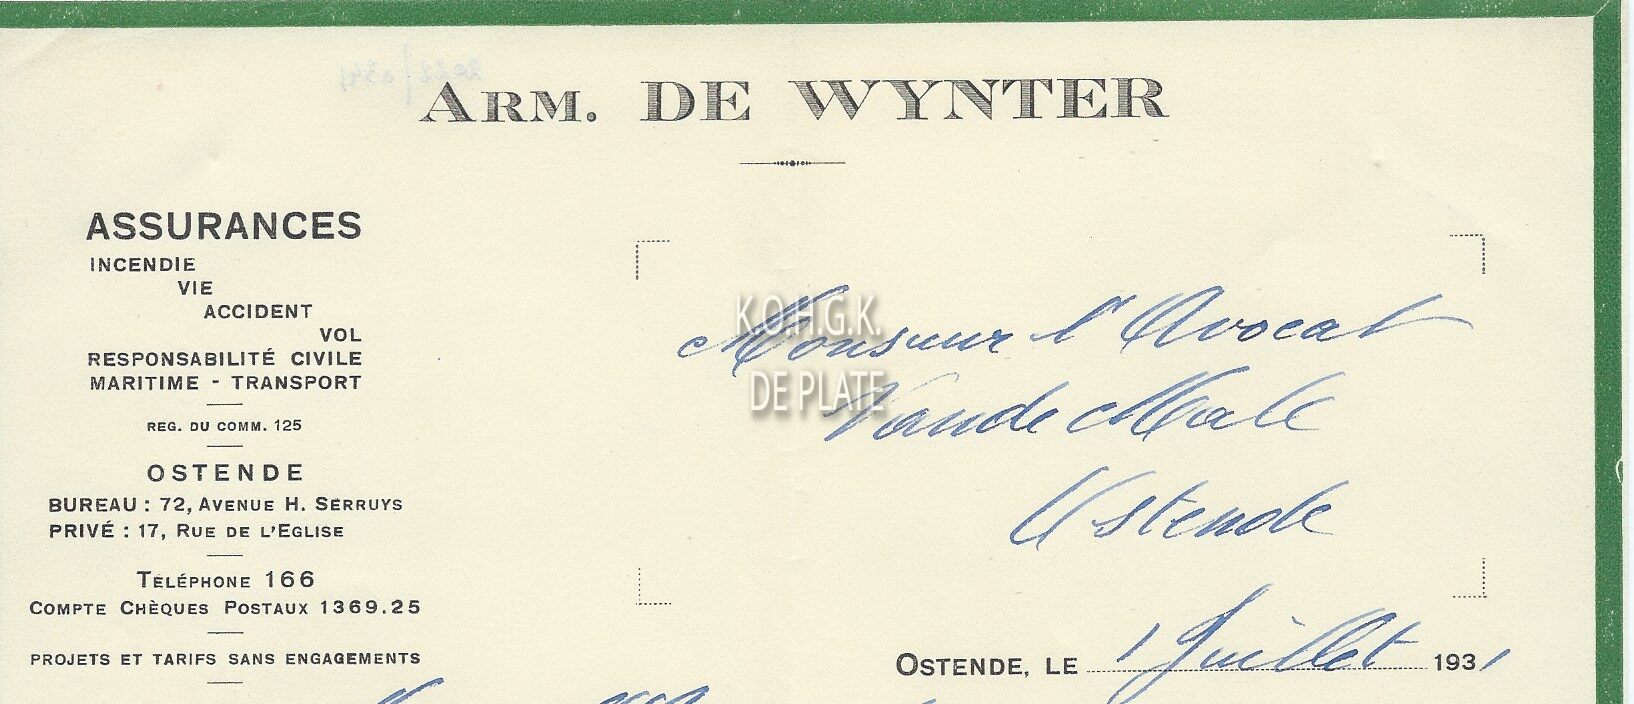 ARM. DE WYNTER
ASSURANCES
INCENDIE
VIE
ACCIDENT
VOL
RESPONSABILITÉ CIVILE
MARITIME - TRANSPORT
REG. DU COMM. 125
OSTENDE
BUREAU : 72, AVENUE H. SERRUYS
PRIVÉ : 17, RUE DE L'EGLISE
TÉLÉPHONE 166
COMPTE CHÈQUES POSTAUX 1369.25
PROJETS ET TARIFS SANS ENGAGEMENTS
Monsieur l'Avocat
Vande Male
Ostende
OSTENDE, LE 1 Juillet 1931
K.O.H.G.K.
DE PLATE